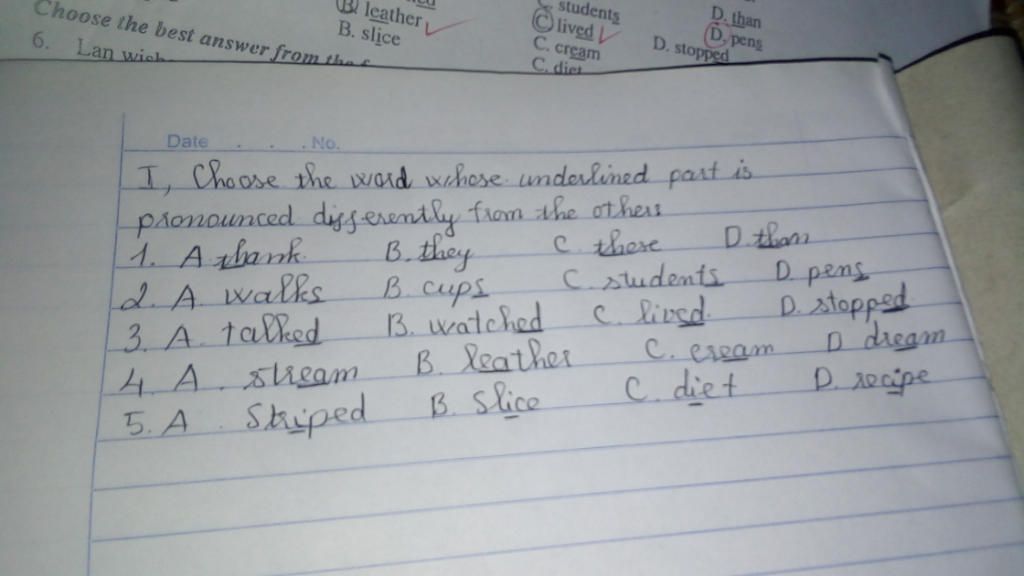 students
D. than
B. leather
C. lived
D. pens
Choose the best answer from the
B. slice
C. cream
D. stopped
6. Lan wish
C. diet
Date . . . No.
I, Choose the word whose underlined part is
pronounced differently from the others
1. A thank B. they C. these D. than
2. A. walks B. cups C. students D. pens
3. A. talked B. watched C. lived. D. stopped
4 A. stream B. leather C. cream D dream
5. A. Striped B. Slice C. diet D. recipe